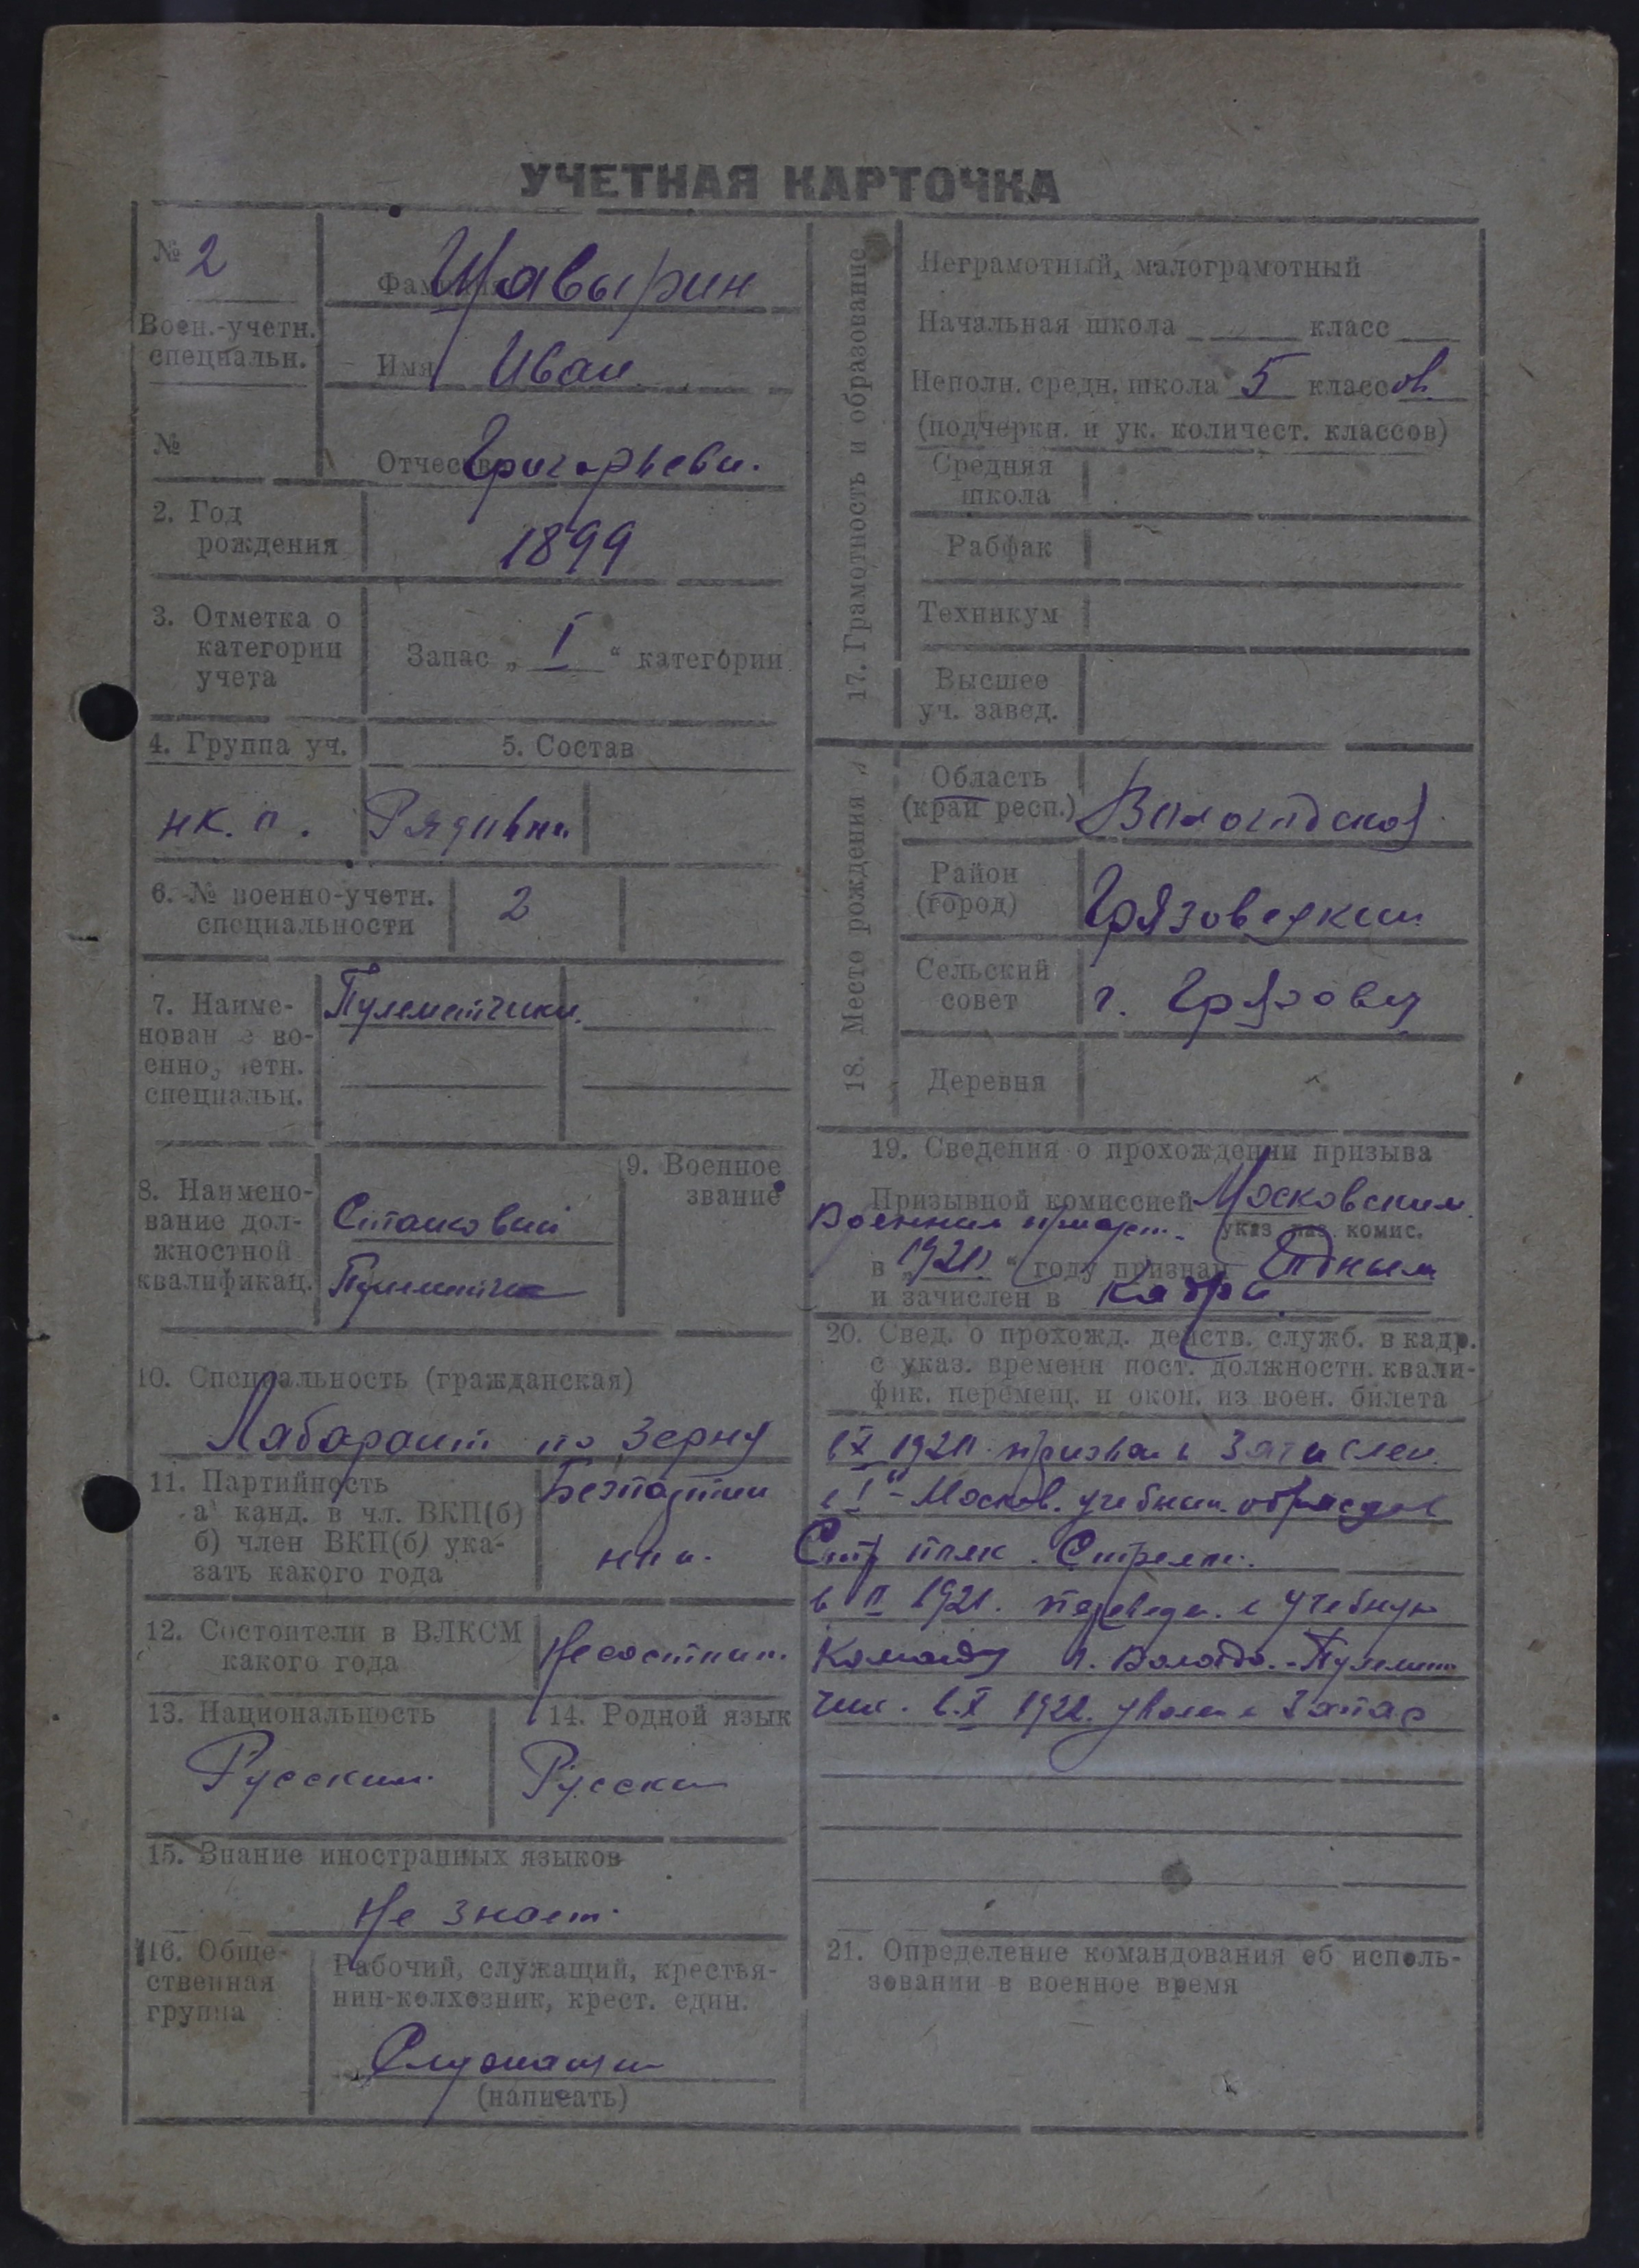 УЧЕТНАЯ КАРТОЧКА
№ 2
Воен.-учетн.
специальн.
№
Фамилия Щавырин
Имя Иван
Отчество Григорьеви.
2. Год
рождения
1899
3. Отметка о
категории
учета
Запас „ I “ категории
4. Группа уч.
5. Состав
нк. п.
Рядовы
6. № военно-учетн.
специальности
2
7. Наиме-
нован е во-
енно, етн.
специальн.
Пулеметчики
8. Наимено-
вание дол-
жностной
квалификац.
Станковый
Пулеметчик
9. Военное
звание
10. Специальность (гражданская)
Лаборант по Зерну
11. Партийность
а) канд. в чл. ВКП(б)
б) член ВКП(б) ука-
зать какого года
Безпартий
ны.
12. Состоители в ВЛКСМ
какого года
Не состоит.
13. Национальность
Русский
14. Родной язык
Русски
15. Знание иностранных языков
Не знает.
16. Обще-
ственная
группа
Рабочий, служащий, крестья-
нин-колхозник, крест. един.
Служащи
(написать)
17. Грамотность и образование
Неграмотный, малограмотный
Начальная школа класс
Неполн. средн. школа 5 классов
(подчеркн. и ук. количест. классов)
Средняя
школа
Рабфак
Техникум
Высшее
уч. завед.
18. Место рождения
Область
(край респ.)
Вологодской
Район
(город)
Грязовецкий
Сельский
совет
г. Грязовец
Деревня
19. Сведения о прохождении призыва
Призывной комиссией Московским
Военным
указ. наз. комис.
в „1920“ году признан Годным
и зачислен в Кадры
20. Свед. о прохожд. действ. служб. в кадр.
с указ. времени пост. должностн. квали-
фик. перемещ. и окон. из воен. билета
в X 1920. призван и Зачислен.
в I - Москов. учебным образцов
Стр полк. Стрелк.
в II 1921. переведен. в учебную
Команду г. Вологда. - Пулемет
чик. в. X 1922. уволен в Запас
21. Определение командования об исполь-
зовании в военное время